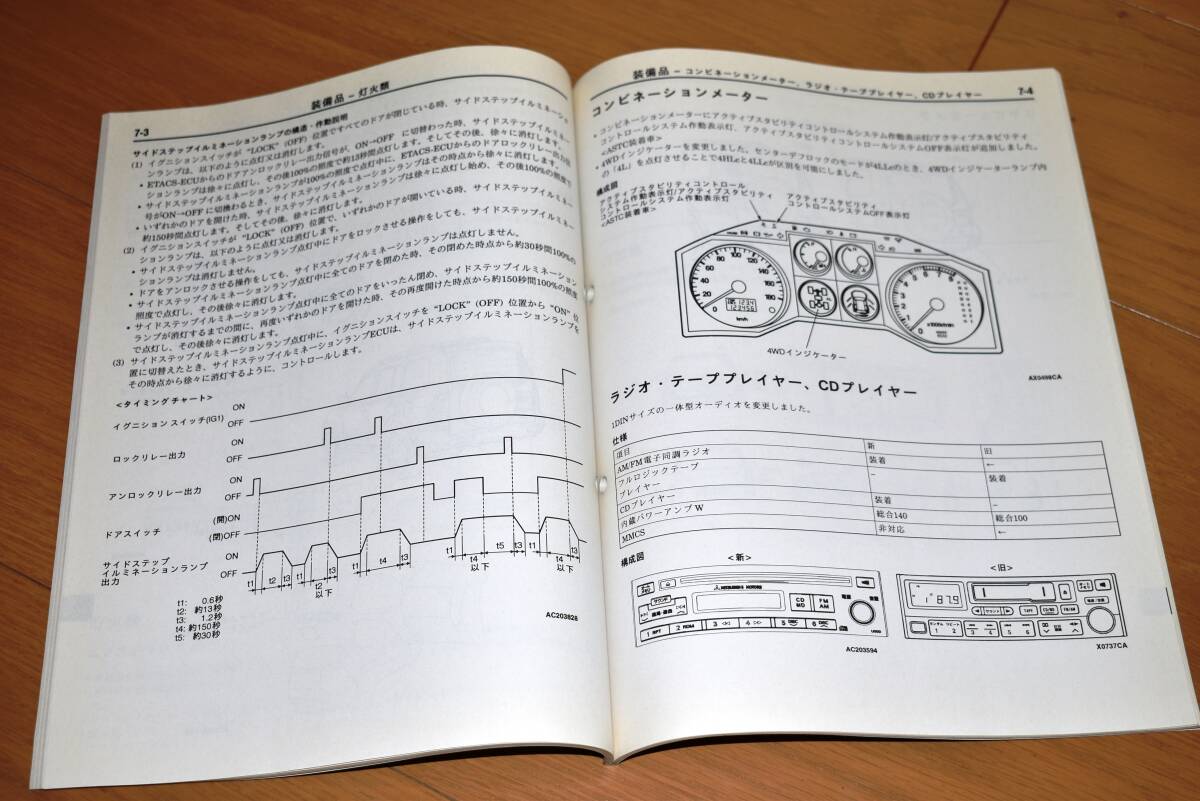 装備品－灯火類
7-3
サイドステップイルミネーションランプの構造・作動説明
(1) イグニションスイッチが “LOCK”(OFF) 位置ですべてのドアが閉じている時、サイドステップイルミネーショ
ンランプは、以下のように点灯又は消灯します。
(2) イグニションスイッチが “LOCK”(OFF) 位置で、いずれかのドアが開いている時、サイドステップイルミネー
ションランプは、以下のように点灯又は消灯します。
• サイドステップイルミネーションランプ点灯中にドアをロックさせる操作をしても、サイドステップイルミネー
ションランプは消灯しません。
• ドアをアンロックさせる操作をしても、サイドステップイルミネーションランプは点灯しません。
• サイドステップイルミネーションランプ点灯中に全てのドアを閉めた時、その閉めた時点から約30秒間100%の
照度で点灯し、その後徐々に消灯します。
• サイドステップイルミネーションランプ点灯中に全てのドアをいったん閉め、サイドステップイルミネーション
ランプが消灯するまでの間に、再度いずれかのドアを開けた時、その再度開けた時点から約150秒間100%の照度
で点灯し、その後徐々に消灯します。
(3) サイドステップイルミネーションランプ点灯中に、イグニションスイッチを “LOCK”(OFF) 位置から “ON” 位
置に切替えたとき、サイドステップイルミネーションランプECUは、サイドステップイルミネーションランプを
その時点から徐々に消灯するように、コントロールします。
<タイミングチャート>
イグニション スイッチ(IG1)
ON
OFF
ロックリレー出力
ON
OFF
アンロックリレー出力
ON
OFF
ドアスイッチ
(開)ON
(閉)OFF
サイドステップ
イルミネーションランプ
出力
ON
OFF
t1 t2 t3 t1 t2 t3 t1 t4 t3 t1 t4 t5 t3 t1 t4 t3
以下 以下 以下
t1: 0.6秒
t2: 約13秒
t3: 1.2秒
t4: 約150秒
t5: 約30秒
AC203828
装備品－コンビネーションメーター、ラジオ・テーププレイヤー、CDプレイヤー
7-4
コンビネーションメーター
• コンビネーションメーターにアクティブスタビリティコントロールシステム作動表示灯/アクティブスタビリティ
コントロールシステム作動表示灯、アクティブスタビリティコントロールシステムOFF表示灯が追加しました。
<ASTC装着車>
• 4WDインジケーターを変更しました。センターデフロックのモードが4LLcのとき、4WDインジケーターランプ内
の「4L」を点灯させることで4HLcと4LLcが区別を可能にしました。
構成図
アクティブスタビリティコントロール
システム作動表示灯/アクティブスタビリティ
コントロールシステム作動表示灯
<ASTC装着車>
アクティブスタビリティ
コントロールシステムOFF表示灯
0 20 40 60 80 100 120 140 160 180
km/h
123456
x1000r/min
4WDインジケーター
AX0498CA
ラジオ・テーププレイヤー、CDプレイヤー
1DINサイズの一体型オーディオを変更しました。
仕様
項目 新 旧
AM/FM電子同調ラジオ 装着 ←
フルロジックテープ
プレイヤー － 装着
CDプレイヤー 装着 －
内蔵パワーアンプW 総合140 総合100
MMCS 非対応 ←
構成図
<新>
<旧>
MITSUBISHI MOTORS
CD
MD
FM
AM
1 RPT 2 RDM 3 4 5 DISC 6 DISC
AC203594
87.9
TAPE
FM/AM
1 2 3 4 5 6
X0737CA